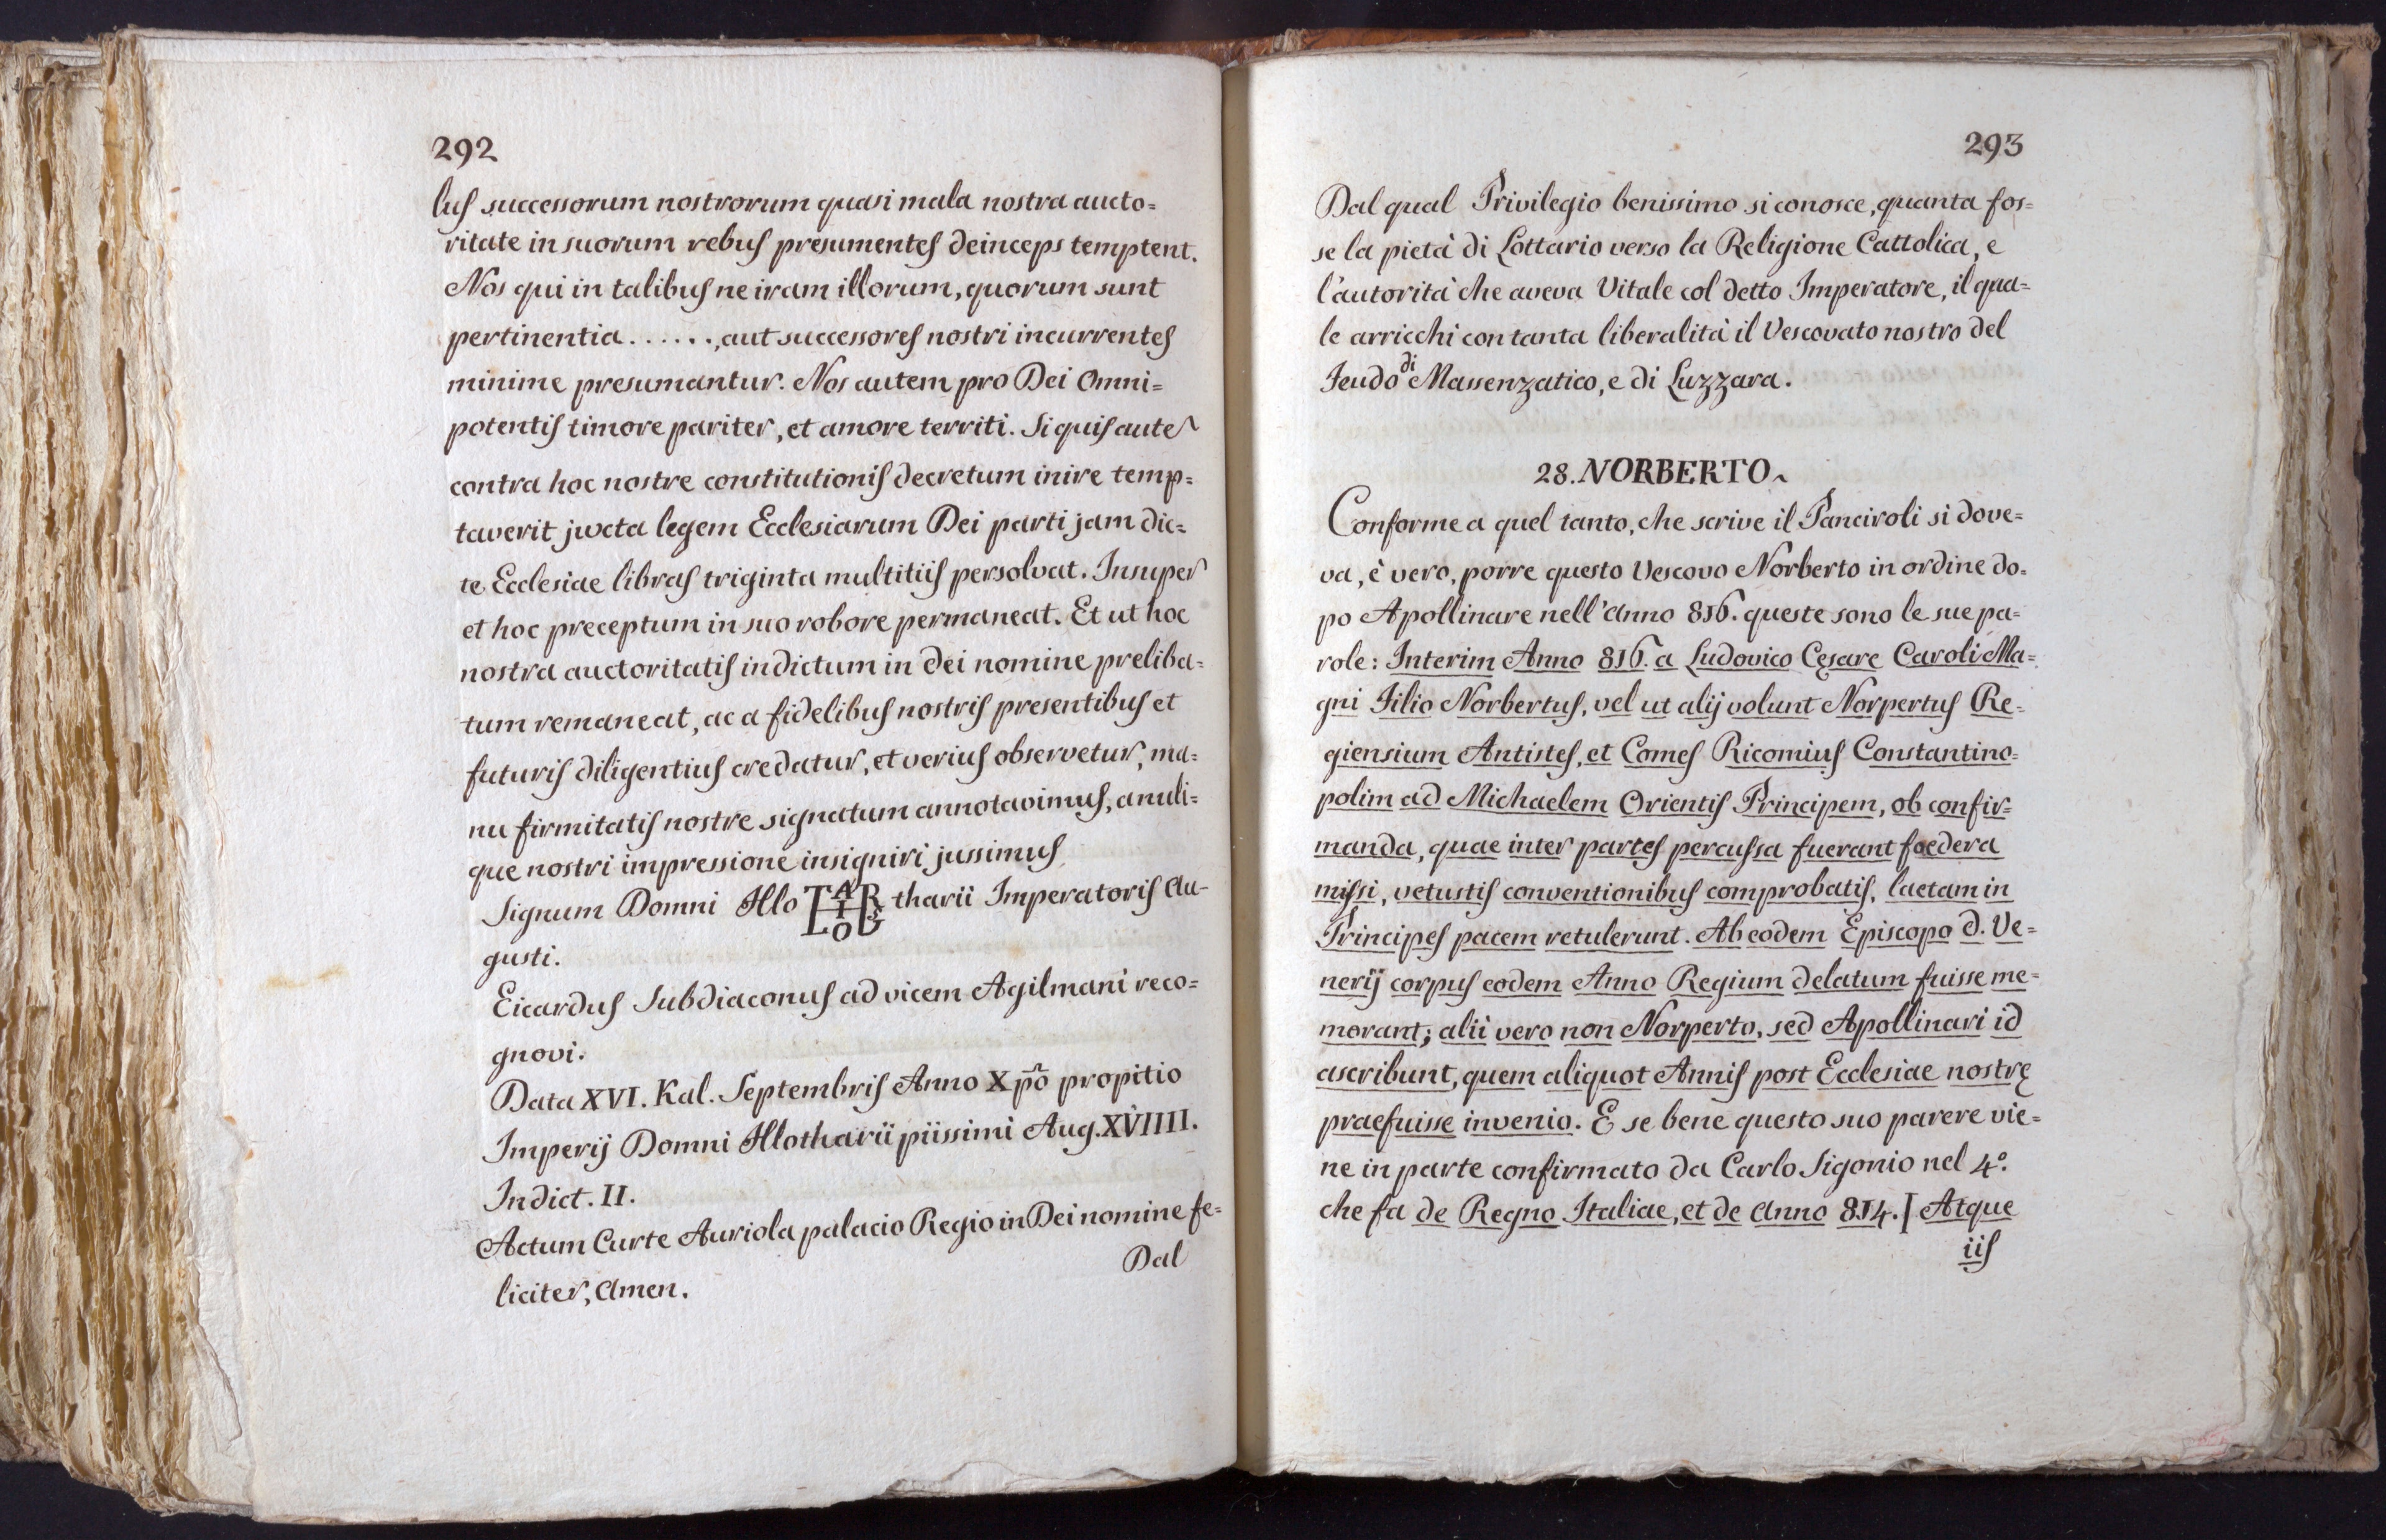 292
lus successorum nostrorum quasi mala nostra aucto=
ritate in suorum rebus presumentes deinceps temptent.
Nos qui in talibus ne iram illorum, quorum sunt
pertinentia......, aut successores nostri incurrentes
minime presumantur. Nos autem pro Dei Omni=
potentis timore pariter, et amore territi. Si quis aute~
contra hoc nostre constitutionis decretum inire temp=
taverit juxta legem Ecclesiarum Dei parti jam dic=
te Ecclesiae libras triginta multitiis persolvat. Insuper
et hoc preceptum in suo robore permaneat. Et ut hoc
nostra auctoritatis indictum in dei nomine preliba=
tum remaneat, ac a fidelibus nostris presentibus et
futuris diligentius credatur, et verius observetur, ma=
nu firmitatis nostre signatum annotavimus, anuli=
que nostri impressione insigniri jussimus
Signum Domni Hlo tharii Imperatoris Au-
gusti.
Eicardus Subdiaconus ad vicem Agilmani reco=
gnovi.
Data XVI. Kal. Septembris Anno Xpõ propitio
Imperij Domni Hlotharii piissimi Aug. XVIIII.
Indict. II.
Actum Curte Auriola palacio Regio in Dei nomine fe=
liciter, Amen.
Dal
293
Dal qual Privilegio benissimo si conosce, quanta fos=
se la pietà di Lottario verso la Religione Cattolica, e
l'autorità che aveva Vitale col detto Imperatore, il qua=
le arricchì con tanta liberalità il Vescovato nostro del
Feudo di Massenzatico, e di Luzzara.
28. NORBERTO~
Conforme a quel tanto, che scrive il Panciroli si dove=
va, è vero, porre questo Vescovo Norberto in ordine do=
po Apollinare nell'Anno 816. queste sono le sue pa=
role: Interim Anno 816. a Ludovico Cęsare Caroli Ma=
gni Filio Norbertus, vel ut alij volunt Norpertus Re=
giensium Antistes, et Comes Ricomius Constantino=
polim ad Michaelem Orientis Principem, ob confir=
manda, quae inter partes percussa fuerant foedera
missi, vetustis conventionibus comprobatis, laetam in
Principes pacem retulerunt. Ab eodem Episcopo d. Ve=
nerij corpus eodem Anno Regium delatum fuisse me=
morant; alii vero non Norperto, sed Apollinari id
ascribunt, quem aliquot Annis post Ecclesiae nostrę
praefuisse invenio. E se bene questo suo parere vie=
ne in parte confirmato da Carlo Sigonio nel 4º.
che fa de Regno Italiae, et de Anno 814. [ Atque
iis